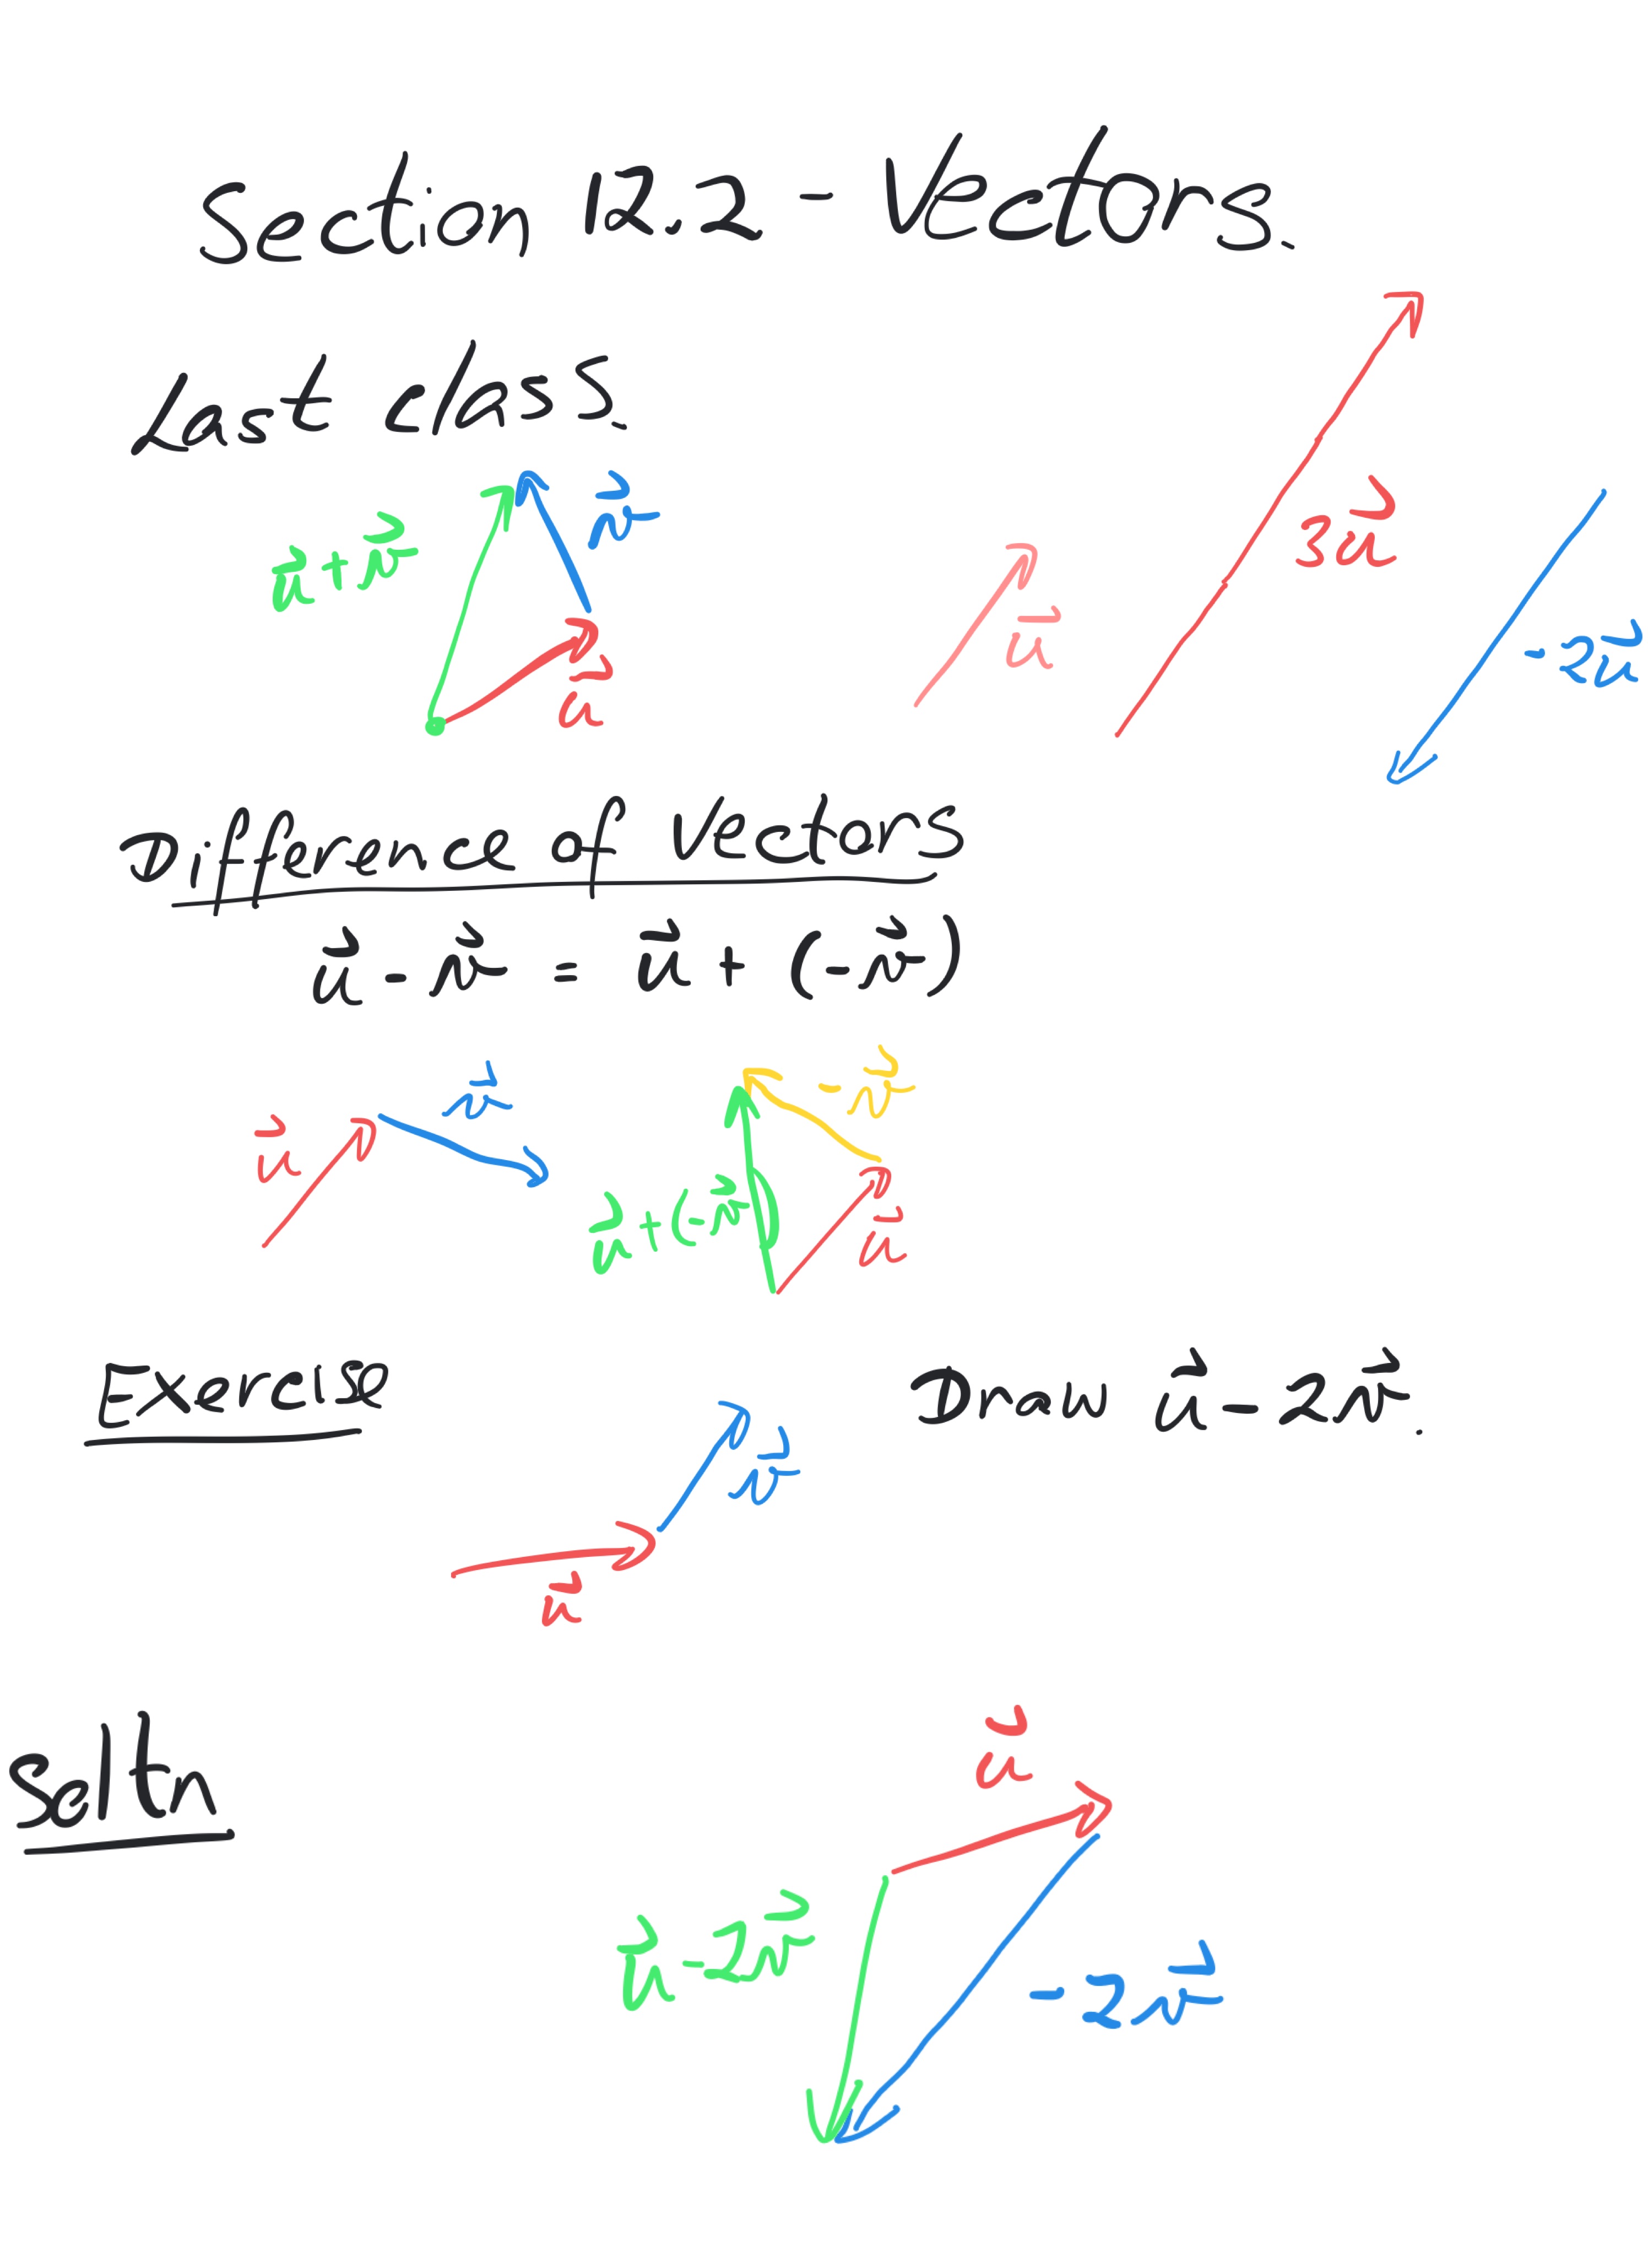 Section 12.2 - Vectors.
Last class.
u⃗ + v⃗
v⃗
u⃗
u⃗
3u⃗
-2u⃗
Difference of Vectors
u⃗ - v⃗ = u⃗ + (-v⃗)
u⃗
v⃗
-v⃗
u⃗ + (-v⃗)
u⃗
Exercise
Draw u⃗ - 2v⃗.
v⃗
u⃗
Soltn
u⃗
u⃗ - 2v⃗
-2v⃗